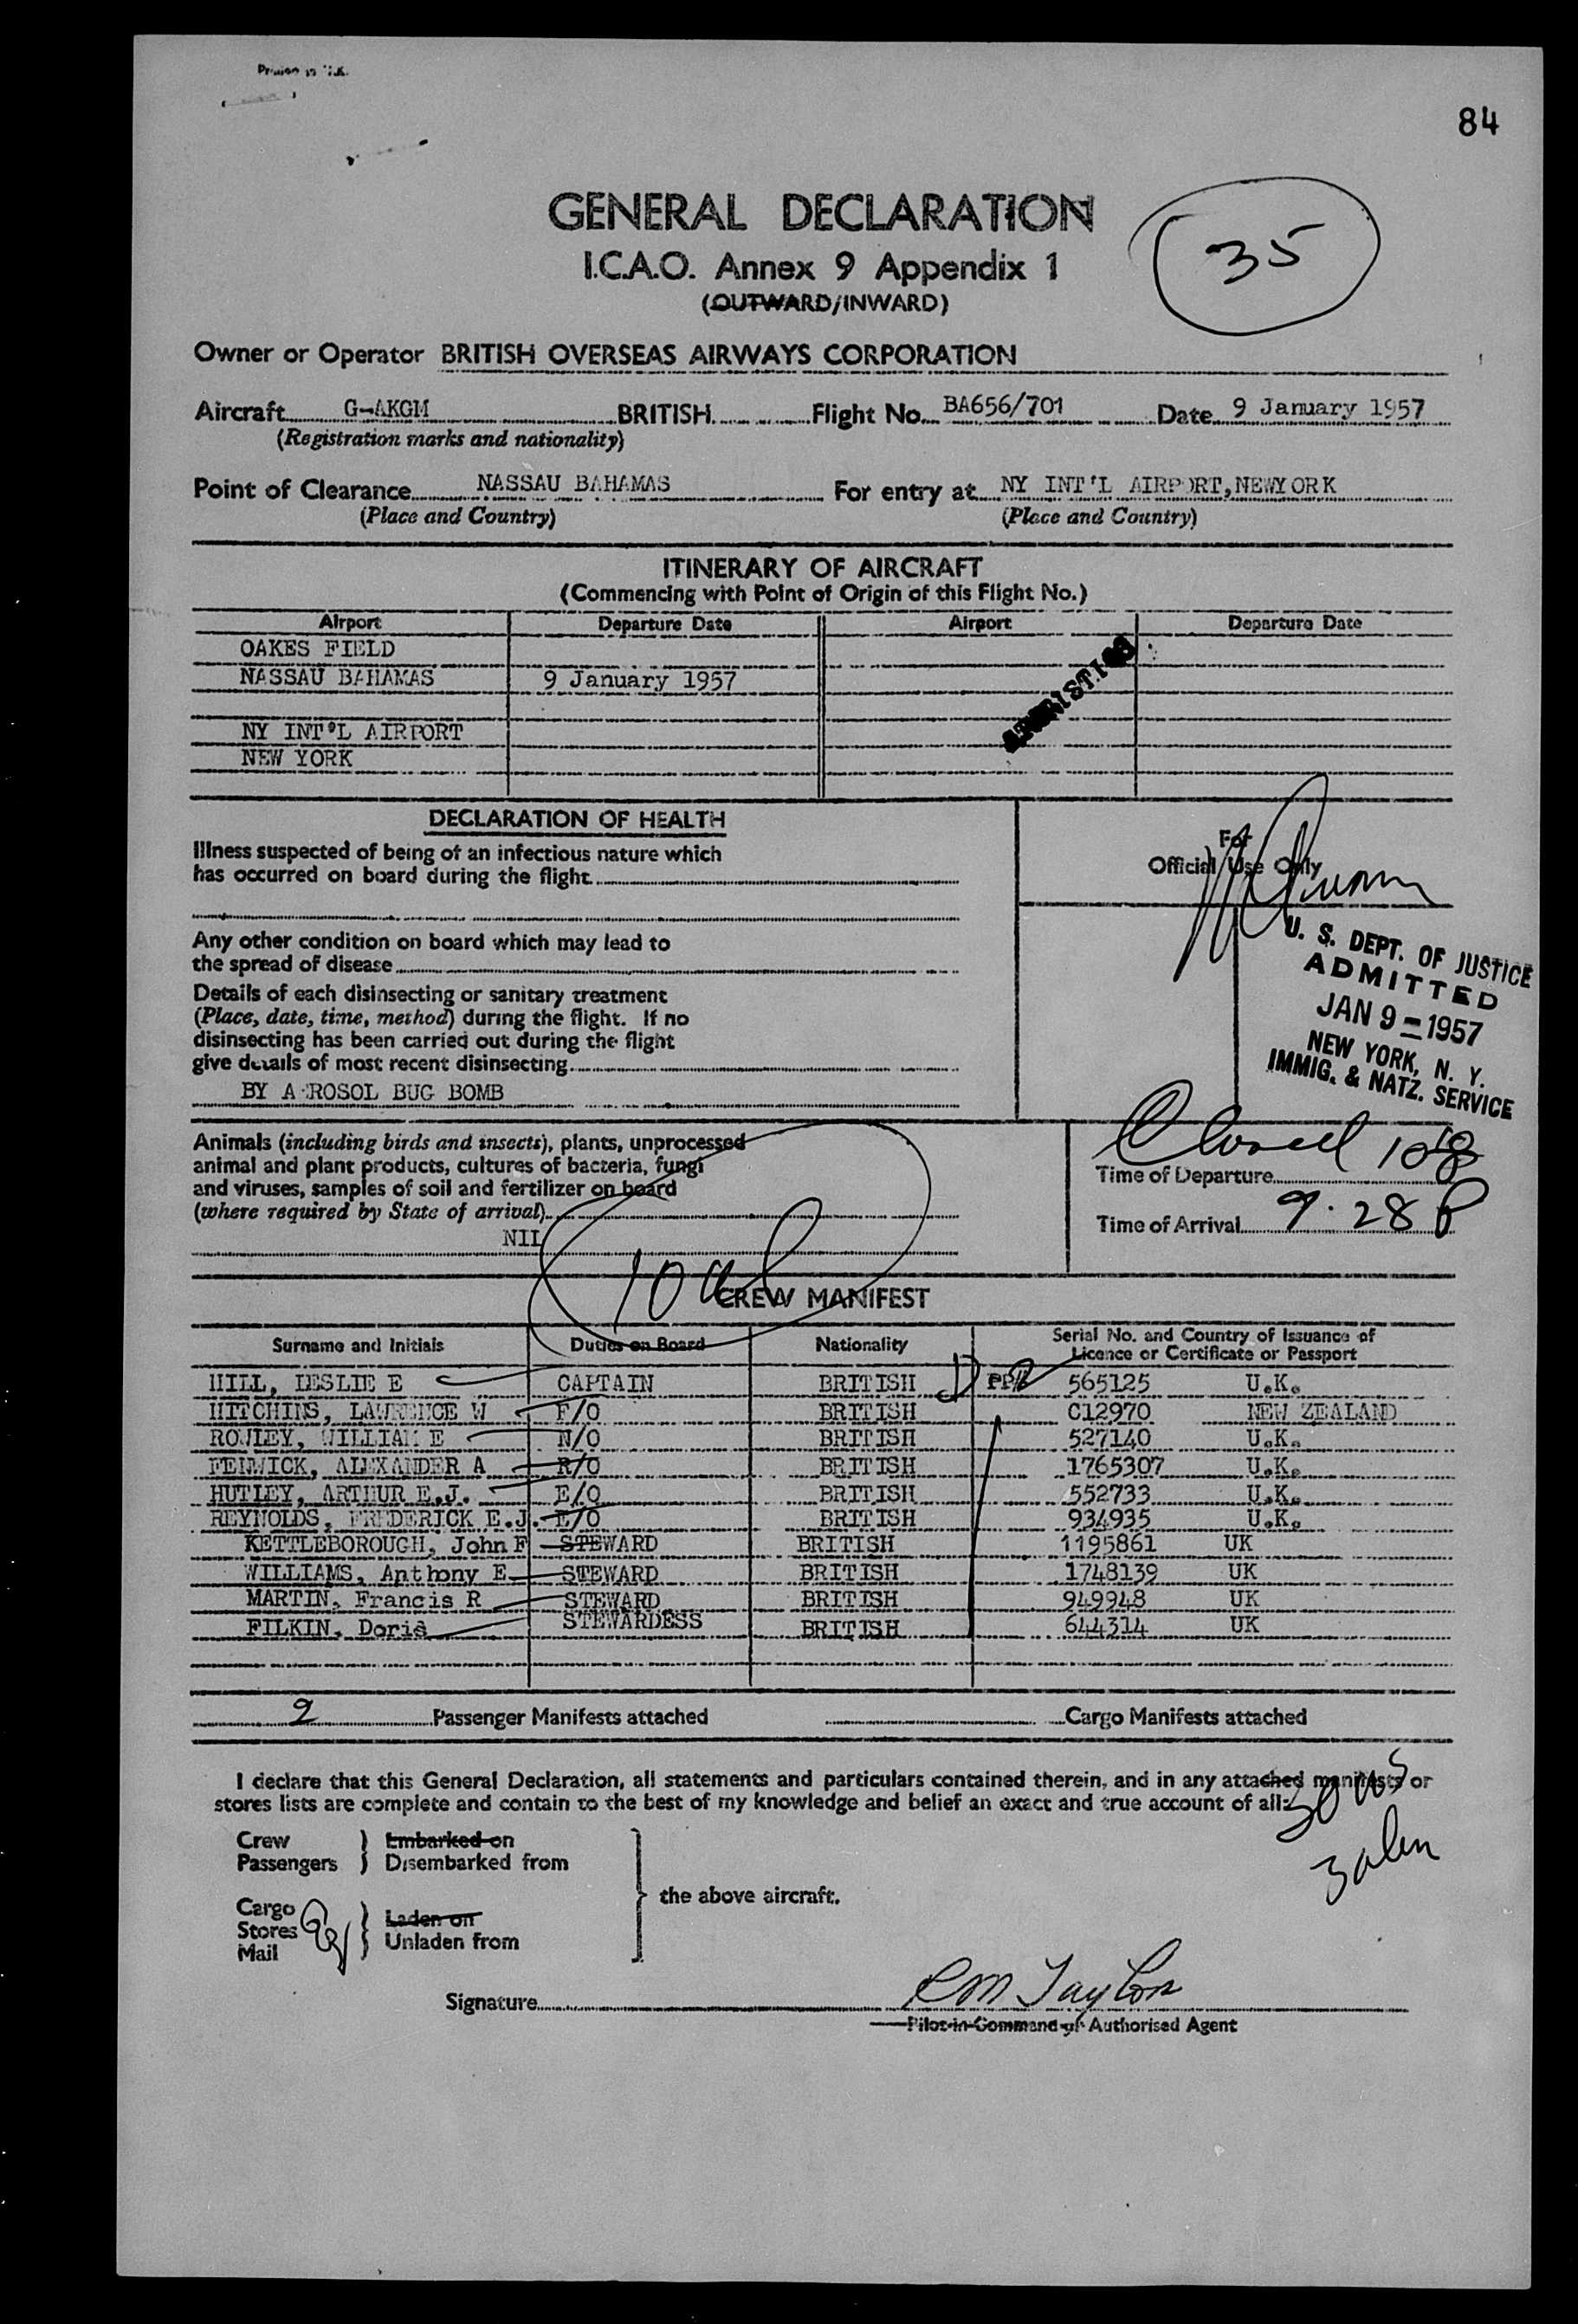 Printed in U.K.
84
GENERAL DECLARATION
35
I.C.A.O. Annex 9 Appendix 1
(OUTWARD/INWARD)
Owner or Operator BRITISH OVERSEAS AIRWAYS CORPORATION
Aircraft G-AKGM BRITISH Flight No. BA656/701 Date 9 January 1957
(Registration marks and nationality)
Point of Clearance NASSAU BAHAMAS For entry at NY INT'L AIRPORT, NEWYORK
(Place and Country) (Place and Country)
ITINERARY OF AIRCRAFT
(Commencing with Point of Origin of this Flight No.)
Airport Departure Date Airport Departure Date
OAKES FIELD
NASSAU BAHAMAS 9 January 1957
NY INT'L AIRPORT
NEW YORK
DECLARATION OF HEALTH
Illness suspected of being of an infectious nature which
has occurred on board during the flight
For
Official Use Only
Any other condition on board which may lead to
the spread of disease
Details of each disinsecting or sanitary treatment
(Place, date, time, method) during the flight. If no
disinsecting has been carried out during the flight
give details of most recent disinsecting
BY AEROSOL BUG BOMB
U. S. DEPT. OF JUSTICE
ADMITTED
JAN 9 - 1957
NEW YORK, N. Y.
IMMIG. & NATZ. SERVICE
Animals (including birds and insects), plants, unprocessed
animal and plant products, cultures of bacteria, fungi
and viruses, samples of soil and fertilizer on board
(where required by State of arrival)
NIL
Closed
Time of Departure
Time of Arrival 9.28 P
10
CREW MANIFEST
Surname and Initials Duties on Board Nationality Serial No. and Country of Issuance of
Licence or Certificate or Passport
HILL, LESLIE E CAPTAIN BRITISH 565125 U.K.
HITCHINS, LAWRENCE W F/O BRITISH C12970 NEW ZEALAND
ROWLEY, WILLIAM E N/O BRITISH 527140 U.K.
FENWICK, ALEXANDER A R/O BRITISH 1765307 U.K.
HUTLEY, ARTHUR E.J. E/O BRITISH 552733 U.K.
REYNOLDS, FREDERICK E.J. E/O BRITISH 934935 U.K.
KETTLEBOROUGH, John F STEWARD BRITISH 1195861 UK
WILLIAMS, Anthony E STEWARD BRITISH 1748139 UK
MARTIN, Francis R STEWARD BRITISH 949948 UK
FILKIN, Doris STEWARDESS BRITISH 644314 UK
2 Passenger Manifests attached Cargo Manifests attached
I declare that this General Declaration, all statements and particulars contained therein, and in any attached manifests or
stores lists are complete and contain to the best of my knowledge and belief an exact and true account of all:
Crew Embarked on
Passengers Disembarked from
the above aircraft.
Cargo
Stores Laden on
Mail Unladen from
Signature RM Taylor
Pilot-in-Command or Authorised Agent